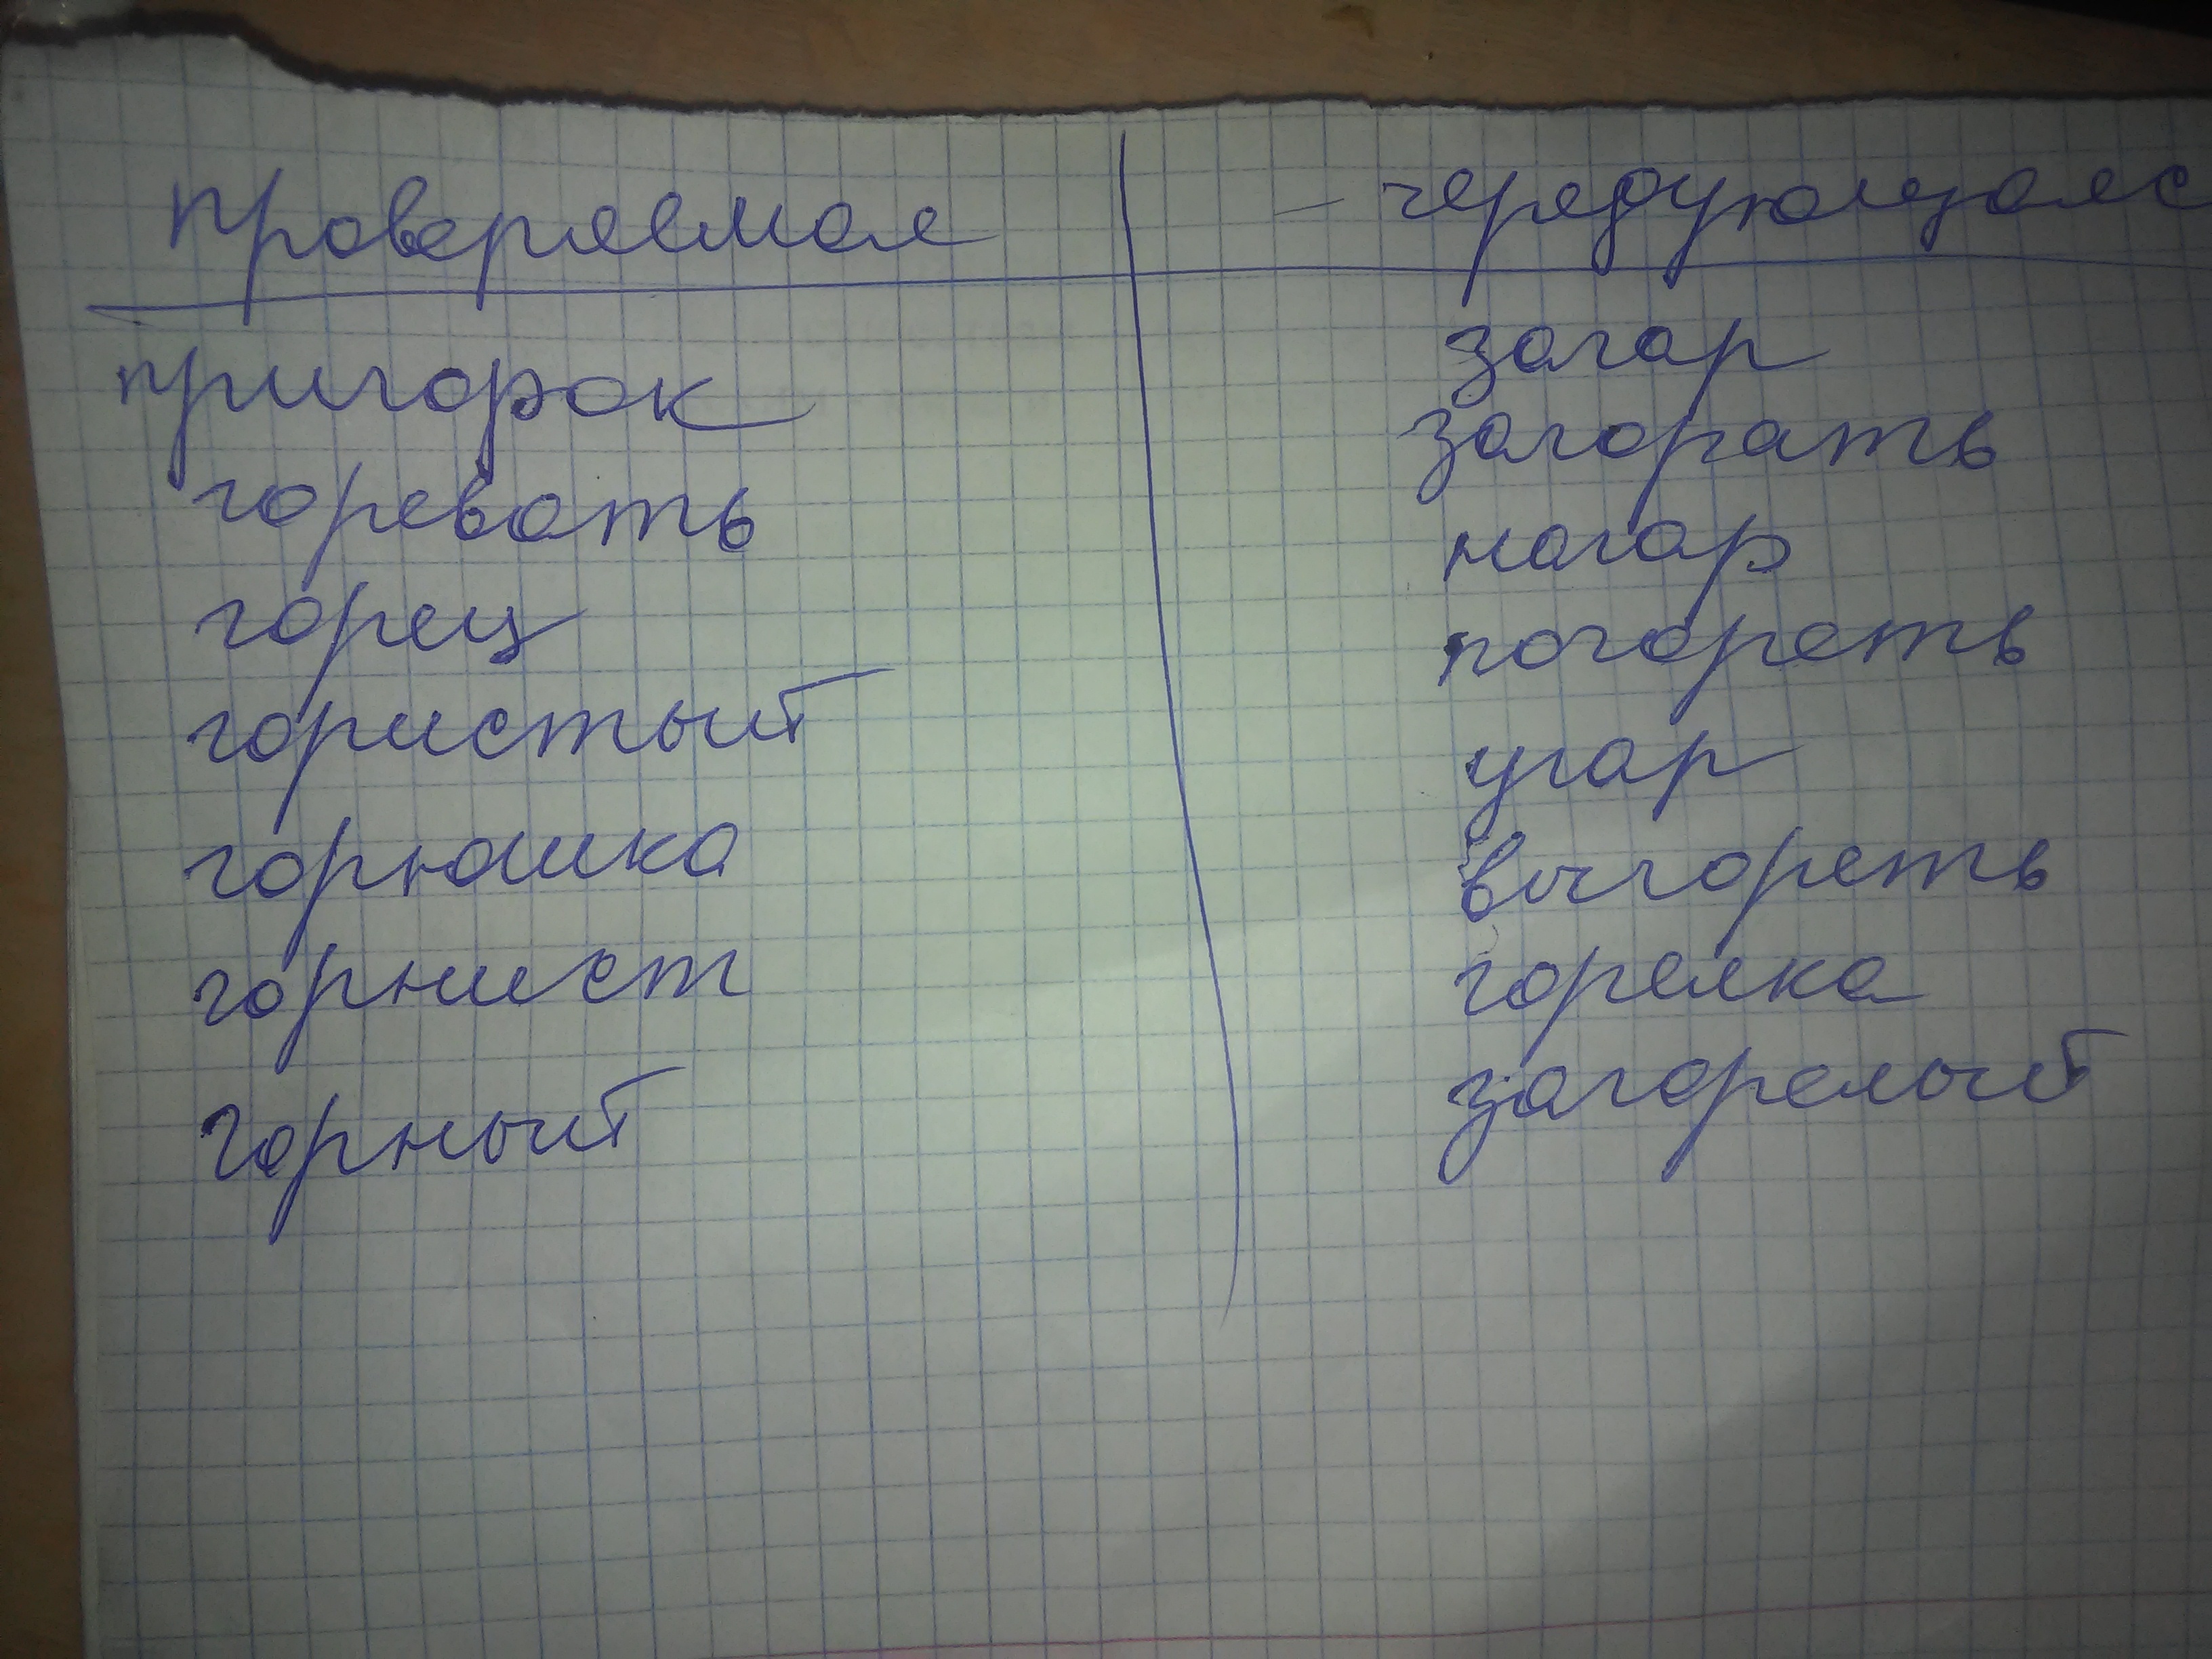 проверяемая - чередующаяс
пригорок загар
горевать загорать
горец нагар
гористый погореть
горюшко угар
горнист выгореть
горный горелка
загорелый